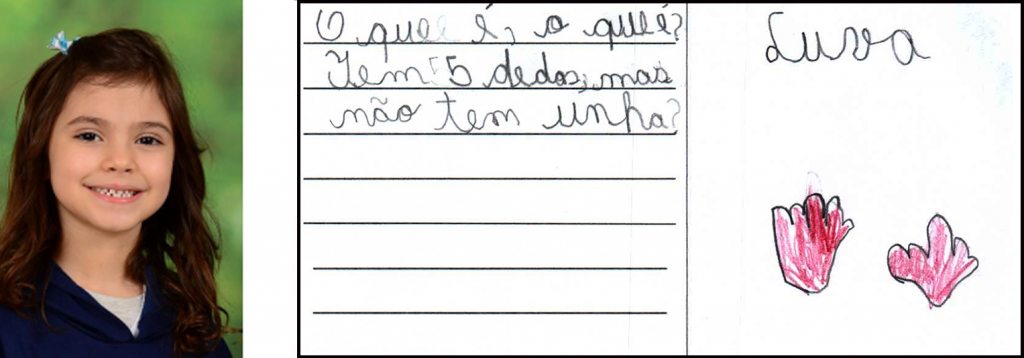 O que é, o que é?
Tem 5 dedos, mas
não tem unha?
Luva